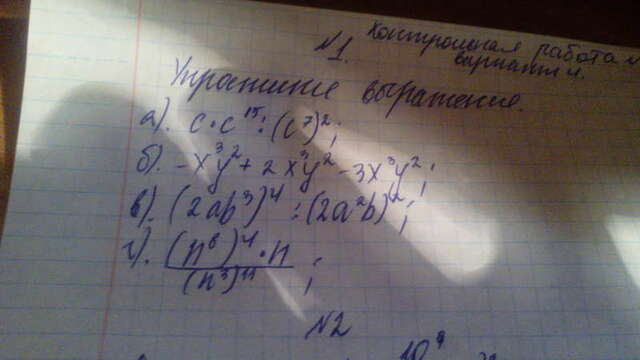 Контрольная работа
№1. вариант 4.
Упрастите выражение.
а). c·c¹⁵:(c⁷)²;
б). -x³y²+2x³y²-3x³y²;
в). (2ab³)⁴:(2a²b)²;
г). (n⁶)⁴·n
(n³)¹¹ ;
№2
10⁹